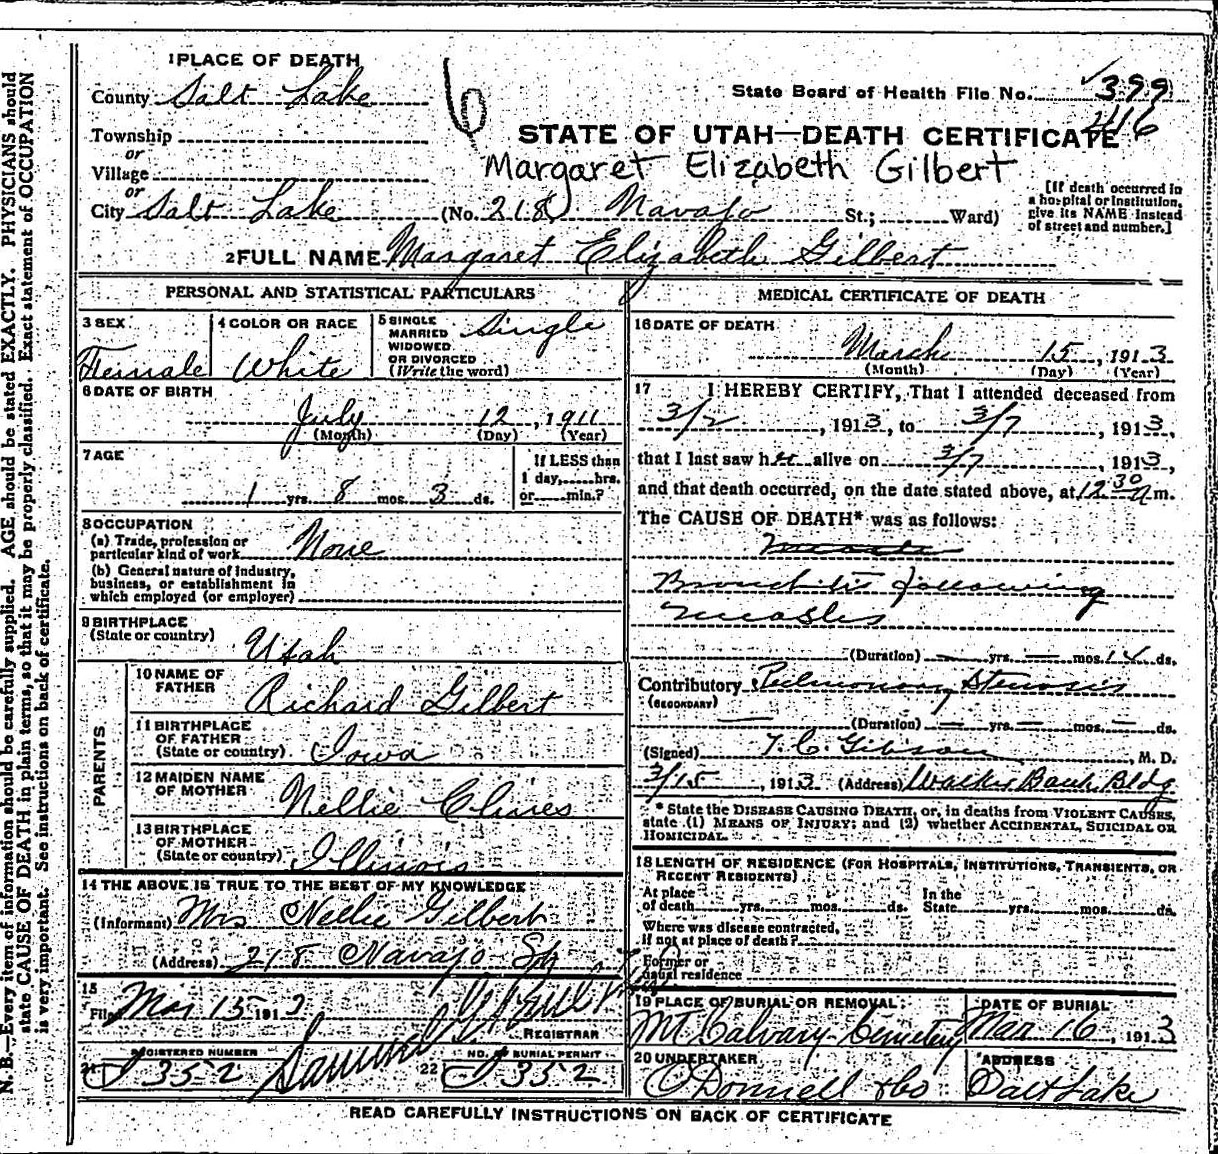 N. B.—Every item of information should be carefully supplied. AGE should be stated EXACTLY. PHYSICIANS should
state CAUSE OF DEATH in plain terms, so that it may be properly classified. Exact statement of OCCUPATION
is very important. See instructions on back of certificate.
1 PLACE OF DEATH
County Salt Lake
Township
or
Village
or
City Salt Lake
6
State Board of Health File No. 399
416
STATE OF UTAH—DEATH CERTIFICATE
Margaret Elizabeth Gilbert
(No. 218 Navajo St.; Ward)
[If death occurred in
a hospital or institution,
give its NAME instead
of street and number.]
2 FULL NAME Margaret Elizabeth Gilbert
PERSONAL AND STATISTICAL PARTICULARS
3 SEX
Female
4 COLOR OR RACE
White
5 SINGLE
MARRIED
WIDOWED
OR DIVORCED
(Write the word)
Single
6 DATE OF BIRTH
July 12, 1911
(Month) (Day) (Year)
7 AGE
1 yrs. 8 mos. 3 ds.
If LESS than
1 day, hrs.
or min.?
8 OCCUPATION
(a) Trade, profession or
particular kind of work None
(b) General nature of industry,
business, or establishment in
which employed (or employer)
9 BIRTHPLACE
(State or country) Utah
PARENTS
10 NAME OF
FATHER Richard Gilbert
11 BIRTHPLACE
OF FATHER
(State or country) Iowa
12 MAIDEN NAME
OF MOTHER Nellie
13 BIRTHPLACE
OF MOTHER
(State or country) Illinois
14 THE ABOVE IS TRUE TO THE BEST OF MY KNOWLEDGE
(Informant) Mrs Nellie Gilbert
(Address) 218 Navajo St
15
Filed Mar 15 1913
REGISTRAR
21 REGISTERED NUMBER
J 352
22 NO. OF BURIAL PERMIT
J 352
MEDICAL CERTIFICATE OF DEATH
16 DATE OF DEATH
March 15, 1913
(Month) (Day) (Year)
17 I HEREBY CERTIFY, That I attended deceased from
3/2, 1913, to 3/7, 1913,
that I last saw her alive on 3/7, 1913,
and that death occurred, on the date stated above, at 12 30 a m.
The CAUSE OF DEATH* was as follows:
Bronchitis following
measles
(Duration) — yrs. — mos. 14 ds.
Contributory Pulmonary Stenosis
(SECONDARY)
(Duration) — yrs. — mos. — ds.
(Signed) T. C. Gibson, M. D.
3/15, 1913 (Address) Walker Bank Bldg
* State the DISEASE CAUSING DEATH, or, in deaths from VIOLENT CAUSES,
state (1) MEANS OF INJURY; and (2) whether ACCIDENTAL, SUICIDAL OR
HOMICIDAL.
18 LENGTH OF RESIDENCE (FOR HOSPITALS, INSTITUTIONS, TRANSIENTS, OR
RECENT RESIDENTS)
At place
of death yrs. mos. ds.
In the
State yrs. mos. ds.
Where was disease contracted,
if not at place of death?
Former or
usual residence
19 PLACE OF BURIAL OR REMOVAL
Mt Calvary Cemetery
DATE OF BURIAL
Mar 16, 1913
20 UNDERTAKER
O'Donnell & Co
ADDRESS
Salt Lake
READ CAREFULLY INSTRUCTIONS ON BACK OF CERTIFICATE